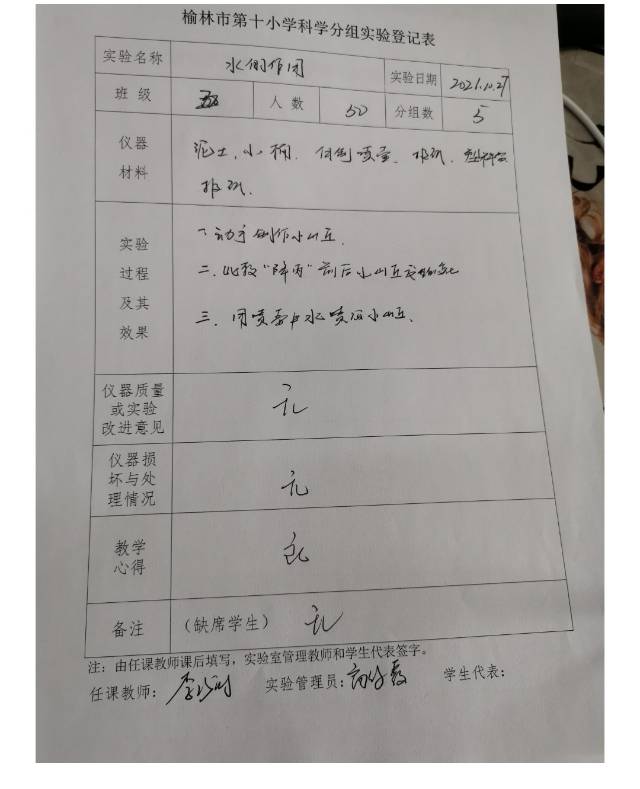 榆林市第十小学科学分组实验登记表
实验名称 水的作用 实验日期 2021.10.27
班 级 五 人 数 50 分组数 5
仪器
材料
泥土、小桶、喷壶、报纸、塑料盒
报纸.
实验
过程
及其
效果
一动手制作小山丘.
二. 比较“降雨”前后小山丘变化
三. 用喷壶水喷洒小山丘.
仪器质量
或实验
改进意见
无
仪器损
坏与处
理情况
无
教学
心得
无
备注 (缺席学生) 无
注：由任课教师课后填写，实验室管理教师和学生代表签字。
任课教师： 实验管理员： 学生代表：